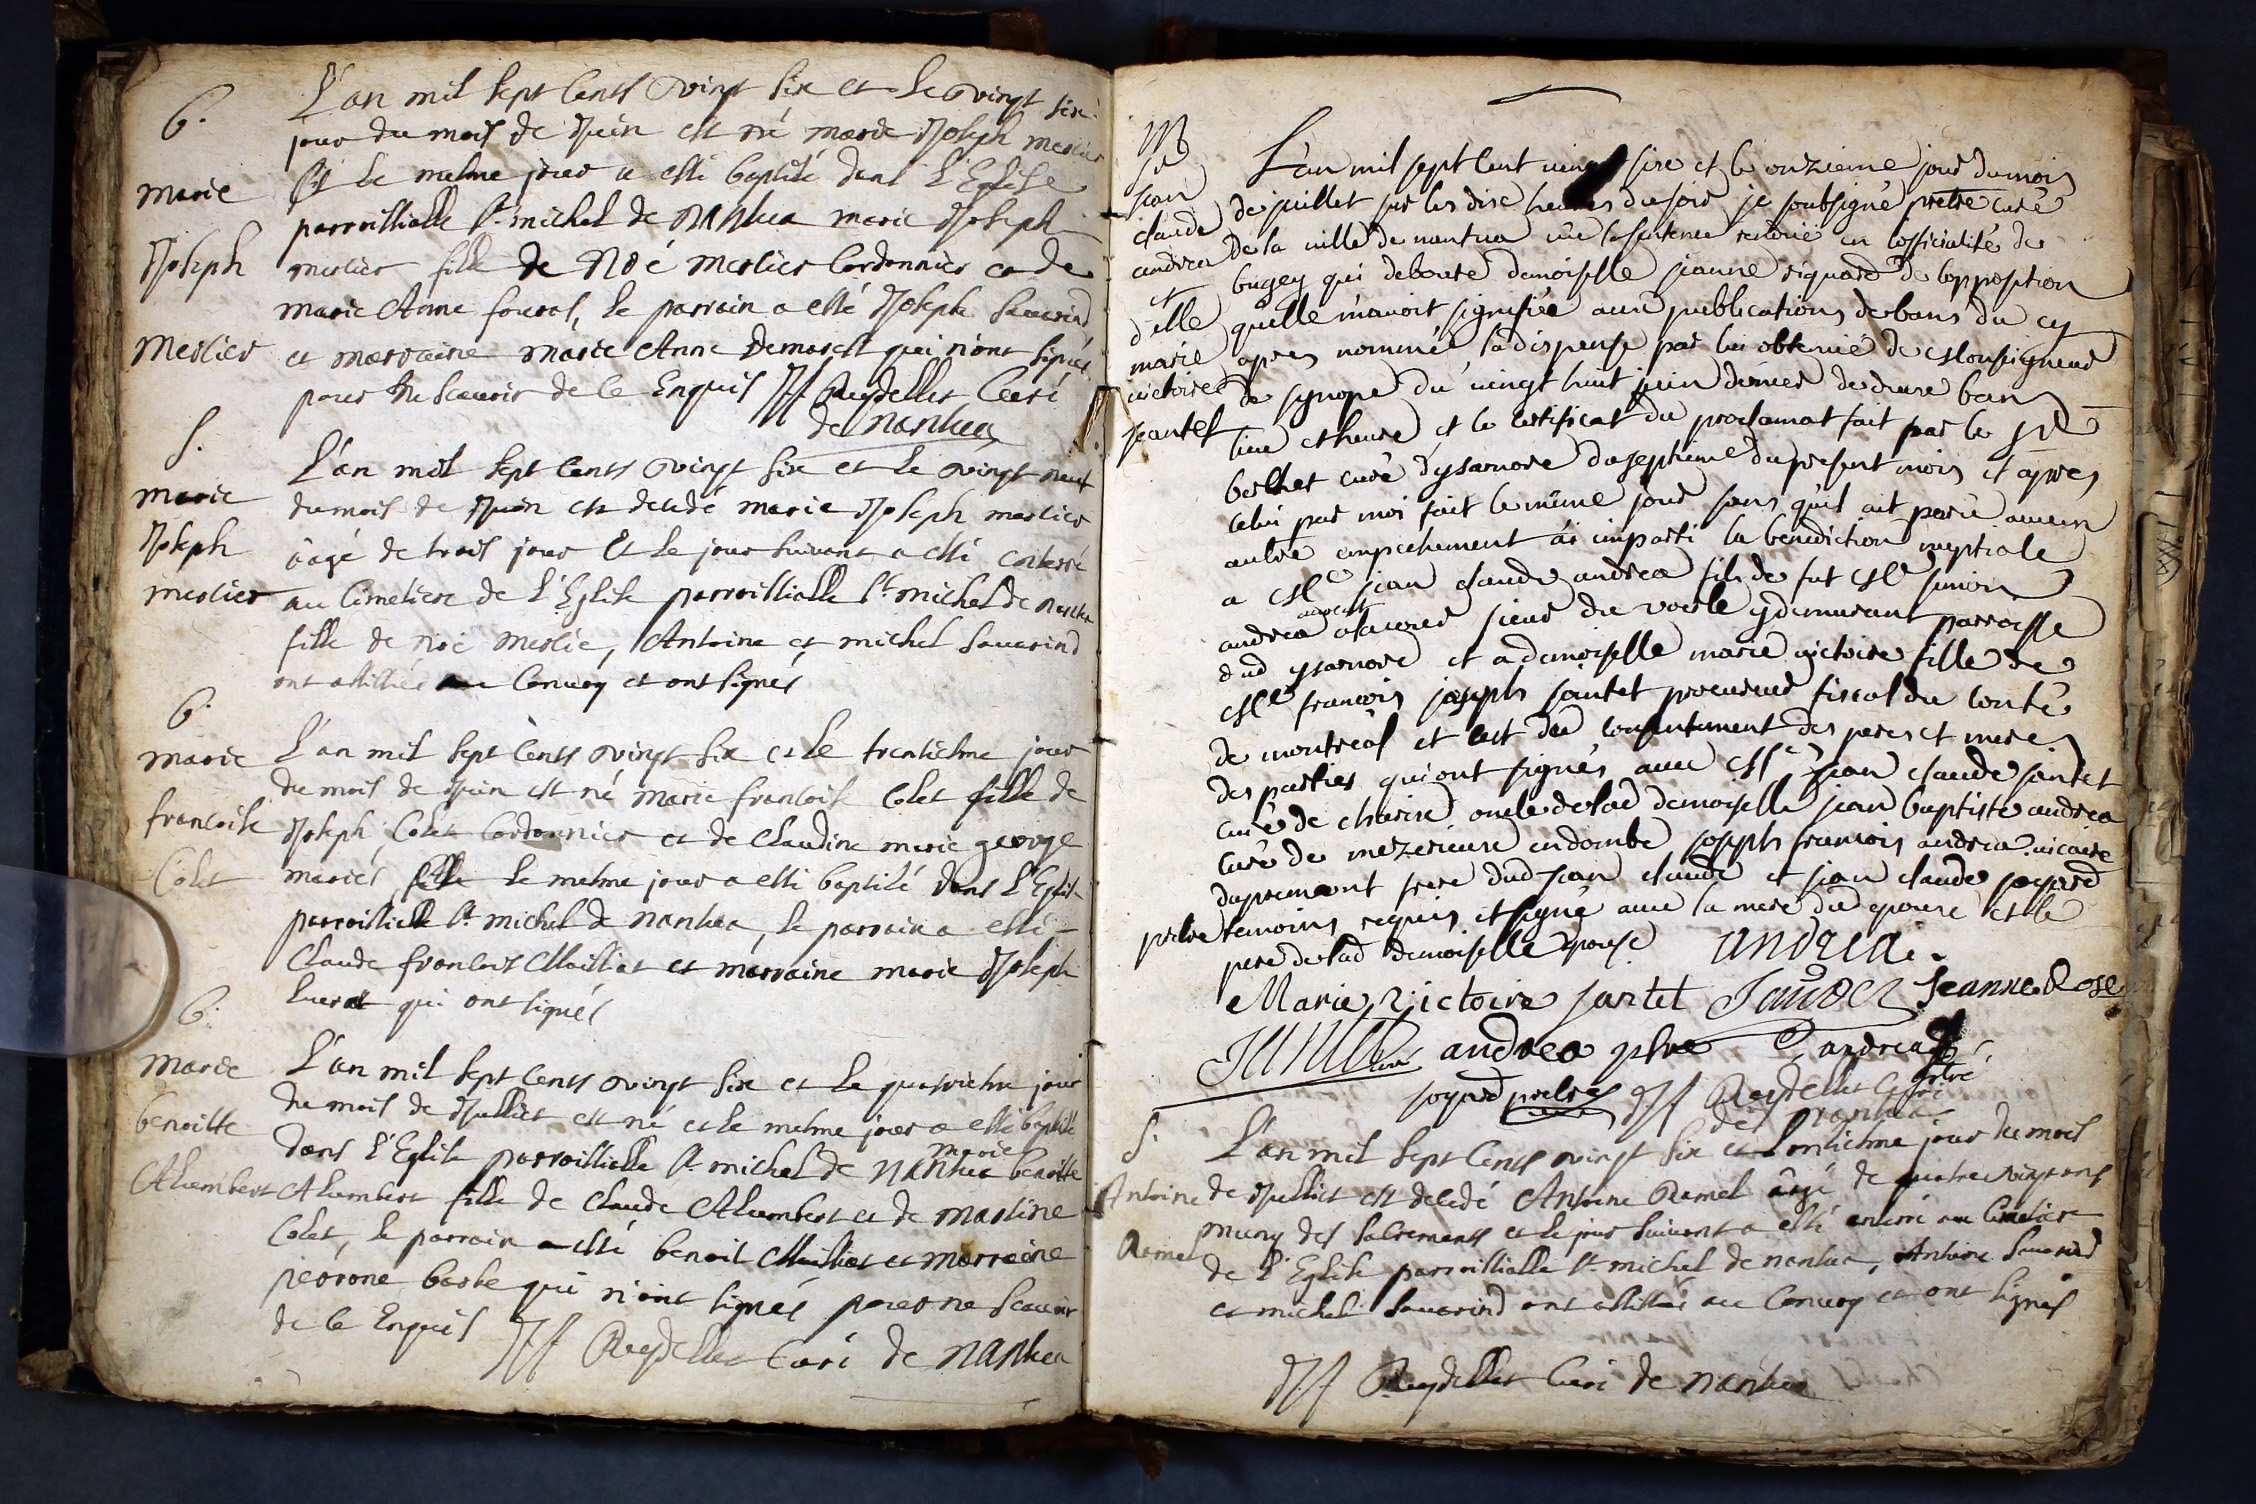 B.
L'an mil sept cents vingt six et le vingt six
jour du mois de Juin est né marie Joseph meslier
Et le mesme jour a esté baptisé dans l'Eglise
marie
parroissialle st michel de Nantua marie Joseph
Joseph
meslier fille de Noé meslier Cordonnier et de
marie Anne fourat, le parrain a esté Joseph Sauarind
meslier
et marraine marie Anne Demarest qui n'ont signés
pour ne scauoir de ce Enquis JJ Reydellet Curé
de nantua
S.
L'an mil sept cents vingt six et le vingt neuf
marie
du mois de Juin est decedé marie Joseph meslier
Joseph
âagé de trois jour Et le jour suiuant a esté enterré
meslier
au Cimetiere de l'Eglise parroissialle st michel de nantua
fille de noé meslié, Antoine et michel Sauarind
ont assistés au Conuoy et ont signés
B.
marie
L'an mil sept cents vingt six et le trentiesme jour
du mois de Juin est né marie francoise Colet fille de
francoise
Joseph Colet Cordonnier et de Claudine marie george
Colet
mariés le mesme jour a esté baptisé dans l'Eglise
parroissialle st michel de nantua, le parrain a esté
Claude francois Maillat et marraine marie Joseph
qui ont signés
B.
marie
L'an mil sept cents vingt six et le quatriesme jour
du mois de Juillet est né et le mesme jour a esté baptisé
benoitte
dans l'Eglise parroissialle st michel de nantua marie benoitte
Alombert
Alombert fille de Claude Alombert et de martine
Colet, le parrain a esté benoit Maillat et marraine
perrone barbe qui n'ont signés pour ne scauoir
de ce Enquis JJ Reydellet Curé de nantua
M
sr
jean
claude
andrea
et
d'lle
marie
victoire
jantet
L'an mil sept cent vingt six et le onzieme jour du mois
de juillet sur les dix heures du soir je soubsigné pretre curé
de la ville de nantua vüe la sentence rendüe en l'officialité de
bugey qui deboute demoiselle jeanne riguard de l'opposition
qu'elle m'avoit signifiée aux publications des bans du cy
apres nommé la dispense par lui obtenüe de Monseigneur
de synope du vingt huit juin dernier de deux bans
lieu et heure et le certificat du proclamat fait par le sr
berthet curé d'ysarnore du septieme du present mois et apres
celui par moi fait le même jour sans qu'il ait paru aucun
autre empechement ai imparti la benediction nuptiale
a Mre jean claude andrea fils de fut Mre simon
andrea avocat sieur du voerle y demeurant parroisse
dud ysarnore et a demoiselle marie victoire fille de
Mre francois joseph jantet procureur fiscal du conté
de montreal et c'est du consentement des peres et meres
des parties qui ont signés avec Mre jean claude jantet
curé de oncle de lad demoiselle jean baptiste andrea
curé de mezerieux en dombe joseph francois andrea vicaire
d'apremont frere dud jean claude et jean claude jogard
pretre temoins requis et signé avec la mere du epoux et le
pere de lad demoiselle epouse andrea.
Marie Victoire jantet Jantet Jeanne Rose
Jantet andrea ptre andrea
jogard pretre JJ Reydellet Curé
de nantua
S.
L'an mil sept cents vingt six et l'onziesme jour du mois
Antoine
de Juillet est decedé Antoine Ramel âagé de quatre vingt ans
Ramel
muny des sacrements et le jour suiuant a esté enterré au Cimetiere
de l'Eglise parroissialle st michel de nantua, Antoine Sauarind
et michel Sauarind ont assistés au Conuoy et ont signés
JJ Reydellet Curé de nantua